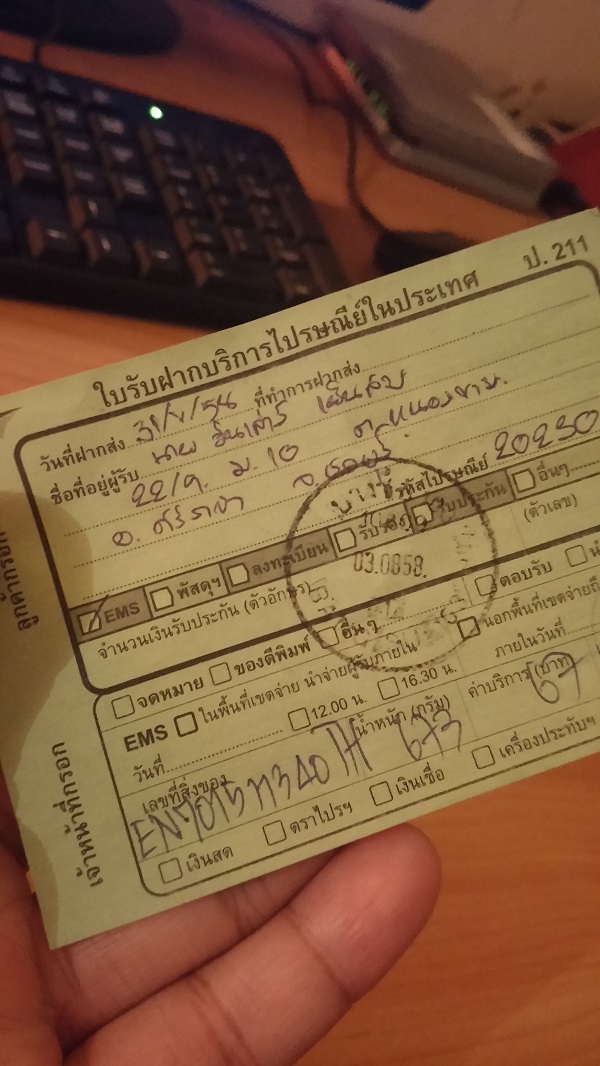 ป. 211
ใบรับฝากบริการไปรษณีย์ในประเทศ
วันที่ฝากส่ง ที่ทำการฝากส่ง
ชื่อที่อยู่ผู้รับ นาย
ม. 10 ต. หนองขาม.
อ. ศรีราชา จ. ชลบุรี. รหัสไปรษณีย์ 20230
EMS พัสดุฯ ลงทะเบียน รับรอง รับประกัน อื่นๆ
จำนวนเงินรับประกัน (ตัวอักษร) (ตัวเลข)
03.0858.
จดหมาย ของตีพิมพ์ อื่น ๆ ตอบรับ
EMS ในพื้นที่เขตจ่าย นำจ่ายผู้รับภายใน นอกพื้นที่เขตจ่ายถึง
วันที่ 12.00 น. 16.30 น. ภายในวันที่
เลขที่สิ่งของ น้ำหนัก (กรัม) ค่าบริการ (บาท)
TH 673 67
เงินสด ตราไปรฯ เงินเชื่อ เครื่องประทับฯ
ลูกค้ากรอก
เจ้าหน้าที่กรอก